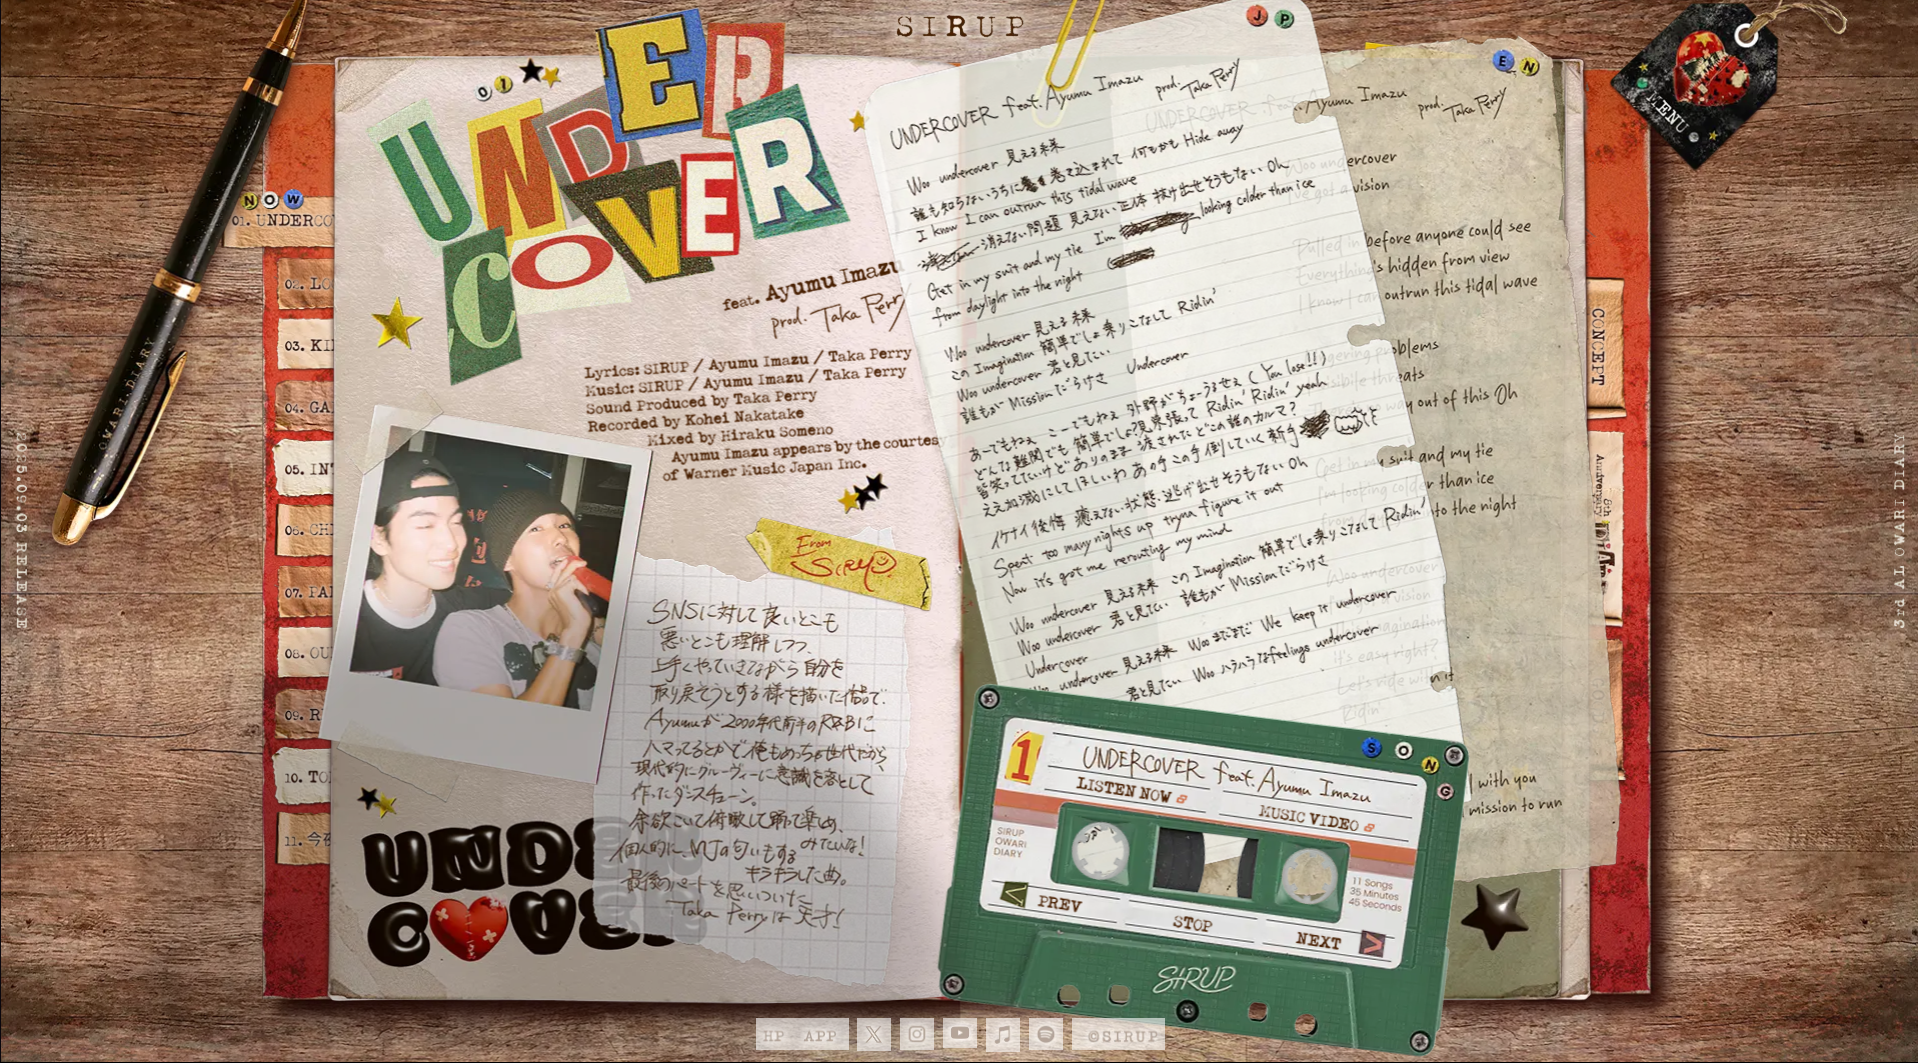 SIRUP
JP
EN
MENU
NOW
01. UNDERCO
02. LO
03. KI
04. GA
05. INT
06. CH
07. PA
08. OU
09. R
10. TO
11. 今夜
OWARI DIARY
2025.09.03 RELEASE
3rd AL OWARI DIARY
CONCEPT
Anniversary
01
UNDER
COVER
feat. Ayumu Imazu
prod. Taka Perry
Lyrics: SIRUP / Ayumu Imazu / Taka Perry
Music: SIRUP / Ayumu Imazu / Taka Perry
Sound Produced by Taka Perry
Recorded by Kohei Nakatake
Mixed by Hiraku Someno
Ayumu Imazu appears by the courtesy
of Warner Music Japan Inc.
From
SIRUP
SNSに対して良いとこも
悪いとこも理解しつつ、
上手くやっていきながら自分を
取り戻そうとする様を描いた作品で、
Ayumuが2000年代前半のR&Bに
ハマってるとかで俺もめっちゃ世代だから
現代的にグルーヴィーに意識を落として
作ったダンスチューン。
余欲こいて俯瞰して踊って楽しめ、みたいな!
個人的に、MJの匂いもする
キラキラした曲。
最後のパートを思いついた
Taka Perryは天才!
UNDE
COVE
UNDERCOVER feat. Ayumu Imazu prod. Taka Perry
Woo undercover 見える未来
誰も知らないうちに巻き込まれて 何もかも Hide away
I know I can outrun this tidal wave
消えない問題 見えない正体 抜け出せそうもない Oh
Get in my suit and my tie I'm looking colder than ice
from daylight into the night
Woo undercover 見える未来
この Imagination 簡単でしょ乗りこなして Ridin'
Woo undercover 君と見たい
誰もが Missionだらけさ Undercover
あーでもねぇ こーでもねぇ 外野がちょーうるせぇ (You lose!!)
どんな難関でも 簡単でしょ視界張って Ridin' Ridin' yeah
皆笑ってたいけどありのまま 渡されたどこの誰のカルマ?
ええ加減にしてほしいわ あの手この手 倒していく新手
イケナイ後悔 癒えない状態 逃げ出せそうもない Oh
Spent too many nights up tryna figure it out
Now it's got me rerouting my mind
Woo undercover 見える未来 この Imagination 簡単でしょ乗りこなして Ridin'
Woo undercover 君と見たい 誰もが Missionだらけさ
Undercover
Woo undercover 見える未来 Woo まだまだ We keep it undercover
君と見たい Woo ハラハラなfeelings undercover
UNDERCOVER feat. Ayumu Imazu prod. Taka Perry
Woo undercover
I've got a vision
Pulled in before anyone could see
Everything's hidden from view
I know I can outrun this tidal wave
Lingering problems
Invisible threats
There's no way out of this Oh
Get in my suit and my tie
I'm looking colder than ice
From daylight into the night
Woo undercover
This imagination
It's easy right?
Let's ride with it
Ridin'
with you
mission to run
1
UNDERCOVER feat. Ayumu Imazu
SONG
LISTEN NOW
MUSIC VIDEO
SIRUP
OWARI
DIARY
11 Songs
35 Minutes
45 Seconds
PREV
STOP
NEXT
SIRUP
HP
APP
©SIRUP